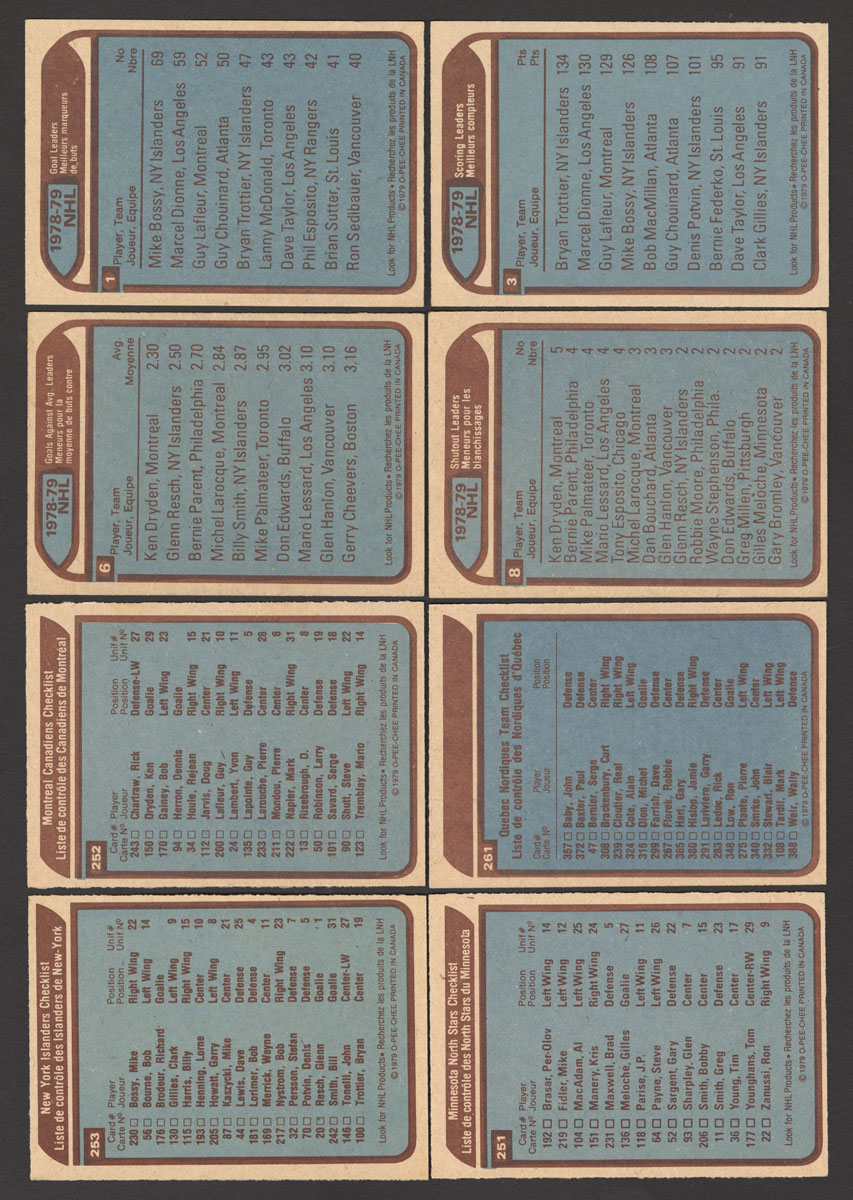 New York Islanders Checklist
Liste de contrôle des Islanders de New-York
253
Card # Player Position Unif #
Carte Nº Joueur Position Unif Nº
230 □ Bossy, Mike Right Wing 22
56 □ Bourne, Bob Left Wing 14
176 □ Brodeur, Richard Goalie
130 □ Gillies, Clark Left Wing 9
115 □ Harris, Billy Right Wing 15
193 □ Henning, Lorne Center 10
205 □ Howatt, Garry Left Wing 8
87 □ Kaszycki, Mike Center 21
44 □ Lewis, Dave Defense 25
181 □ Lorimer, Bob Defense 4
169 □ Merrick, Wayne Center 11
217 □ Nystrom, Bob Right Wing 23
32 □ Persson, Stefan Defense 7
70 □ Potvin, Denis Defense 5
20 □ Resch, Glenn Goalie 1
242 □ Smith, Bill Goalie 31
146 □ Tonelli, John Center-LW 27
100 □ Trottier, Bryan Center 19
Look for NHL Products • Recherchez les produits de la LNH
©1979 O-PEE-CHEE PRINTED IN CANADA
Montreal Canadiens Checklist
Liste de contrôle des Canadiens de Montréal
252
Card # Player Position Unif #
Carte Nº Joueur Position Unif Nº
243 □ Chartraw, Rick Defense-LW 27
150 □ Dryden, Ken Goalie 29
170 □ Gainey, Bob Left Wing 23
94 □ Herron, Dennis Goalie
34 □ Houle, Rejean Right Wing 15
112 □ Jarvis, Doug Center 21
200 □ Lafleur, Guy Right Wing 10
24 □ Lambert, Yvon Left Wing 11
135 □ Lapointe, Guy Defense 5
233 □ Larouche, Pierre Center 28
211 □ Mondou, Pierre Center 6
222 □ Napier, Mark Right Wing 31
13 □ Risebrough, D. Center 8
50 □ Robinson, Larry Defense 19
101 □ Savard, Serge Defense 18
90 □ Shutt, Steve Left Wing 22
123 □ Tremblay, Mario Right Wing 14
Look for NHL Products • Recherchez les produits de la LNH
©1979 O-PEE-CHEE PRINTED IN CANADA
1978-79
NHL
Goals Against Avg. Leaders
Meneurs pour la
moyenne de buts contre
6
Player, Team Avg.
Joueur, Equipe Moyenne
Ken Dryden, Montreal 2.30
Glenn Resch, NY Islanders 2.50
Bernie Parent, Philadelphia 2.70
Michel Larocque, Montreal 2.84
Billy Smith, NY Islanders 2.87
Mike Palmateer, Toronto 2.95
Don Edwards, Buffalo 3.02
Mario Lessard, Los Angeles 3.10
Glen Hanlon, Vancouver 3.10
Gerry Cheevers, Boston 3.16
Look for NHL Products • Recherchez les produits de la LNH
©1979 O-PEE-CHEE PRINTED IN CANADA
1978-79
NHL
Goal Leaders
Meilleurs marqueurs
de buts
1
Player, Team No
Joueur, Equipe Nbre
Mike Bossy, NY Islanders 69
Marcel Dionne, Los Angeles 59
Guy Lafleur, Montreal 52
Guy Chouinard, Atlanta 50
Bryan Trottier, NY Islanders 47
Lanny McDonald, Toronto 43
Dave Taylor, Los Angeles 43
Phil Esposito, NY Rangers 42
Brian Sutter, St. Louis 41
Ron Sedlbauer, Vancouver 40
Look for NHL Products • Recherchez les produits de la LNH
©1979 O-PEE-CHEE PRINTED IN CANADA
Minnesota North Stars Checklist
Liste de contrôle des North Stars du Minnesota
251
Card # Player Position Unif #
Carte Nº Joueur Position Unif Nº
192 □ Brasar, Per-Olov Left Wing 14
219 □ Fidler, Mike Left Wing 12
104 □ MacAdam, Al Left Wing 25
151 □ Manery, Kris Right Wing 24
231 □ Maxwell, Brad Defense 5
136 □ Meloche, Gilles Goalie 27
118 □ Parise, J.P. Left Wing 11
64 □ Payne, Steve Left Wing 26
52 □ Sargent, Gary Defense 22
93 □ Sharpley, Glen Center 7
206 □ Smith, Bobby Center 15
11 □ Smith, Greg Defense 23
36 □ Young, Tim Center 17
177 □ Younghans, Tom Center-RW 29
22 □ Zanussi, Ron Right Wing 9
Look for NHL Products • Recherchez les produits de la LNH
©1979 O-PEE-CHEE PRINTED IN CANADA
Quebec Nordiques Team Checklist
Liste de contrôle des Nordiques d'Québec
261
Card # Player Position
Carte Nº Joueur Position
357 □ Baby, John Defense
372 □ Baxter, Paul Defense
47 □ Bernier, Serge Center
308 □ Brackenbury, Curt Right Wing
239 □ Cloutier, Real Right Wing
324 □ Cote, Alain Left Wing
316 □ Dion, Michel Goalie
299 □ Farrish, Dave Defense
267 □ Ftorek, Robbie Center
385 □ Hart, Gary Defense
380 □ Hislop, Jamie Right Wing
291 □ Lariviere, Garry Defense
283 □ Leduc, Rich Center
348 □ Low, Ron Goalie
275 □ Plante, Pierre Left Wing
340 □ Smrke, John Center
332 □ Stewart, Blair Left Wing
108 □ Tardif, Mark Left Wing
388 □ Weir, Wally Defense
Look for NHL Products • Recherchez les produits de la LNH
©1979 O-PEE-CHEE PRINTED IN CANADA
1978-79
NHL
Shutout Leaders
Meneurs pour les
blanchissages
8
Player, Team No
Joueur, Equipe Nbre
Ken Dryden, Montreal 5
Bernie Parent, Philadelphia 4
Mike Palmateer, Toronto 4
Mario Lessard, Los Angeles 4
Tony Esposito, Chicago 4
Michel Larocque, Montreal 3
Dan Bouchard, Atlanta 3
Glen Hanlon, Vancouver 3
Glenn Resch, NY Islanders 2
Robbie Moore, Philadelphia 2
Wayne Stephenson, Phila. 2
Don Edwards, Buffalo 2
Greg Millen, Pittsburgh 2
Gilles Meloche, Minnesota 2
Gary Bromley, Vancouver 2
Look for NHL Products • Recherchez les produits de la LNH
©1979 O-PEE-CHEE PRINTED IN CANADA
1978-79
NHL
Scoring Leaders
Meilleurs compteurs
3
Player, Team Pts
Joueur, Equipe Pts
Bryan Trottier, NY Islanders 134
Marcel Dionne, Los Angeles 130
Guy Lafleur, Montreal 129
Mike Bossy, NY Islanders 126
Bob MacMillan, Atlanta 108
Guy Chouinard, Atlanta 107
Denis Potvin, NY Islanders 101
Bernie Federko, St. Louis 95
Dave Taylor, Los Angeles 91
Clark Gillies, NY Islanders 91
Look for NHL Products • Recherchez les produits de la LNH
©1979 O-PEE-CHEE PRINTED IN CANADA